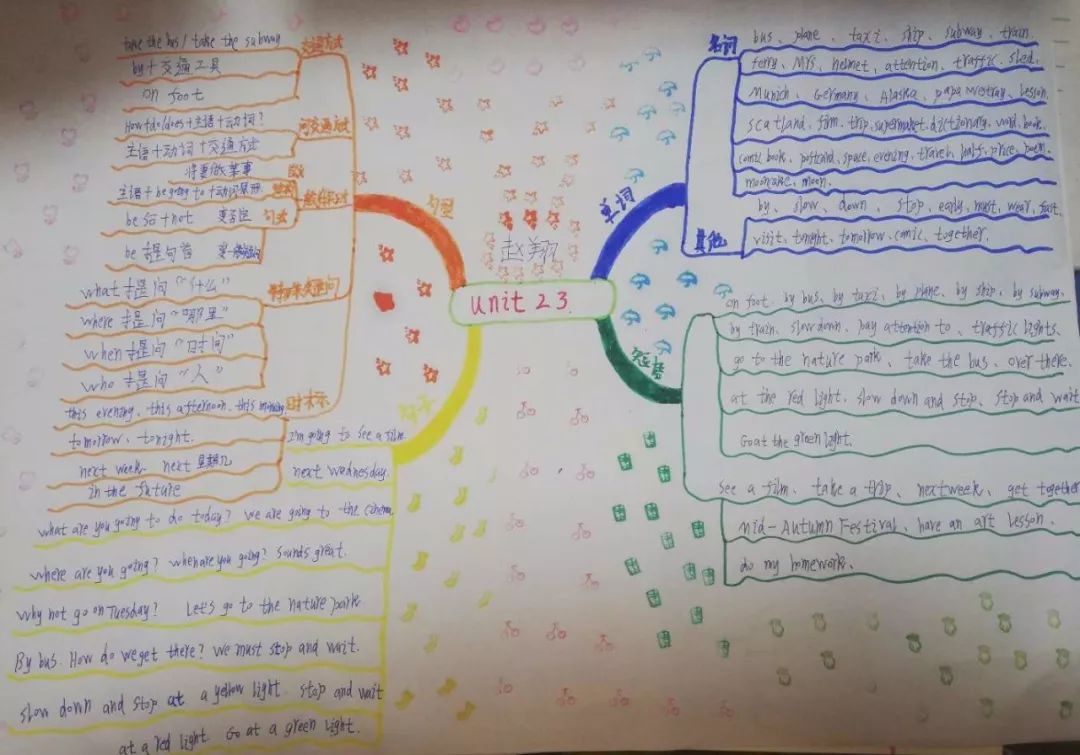 赵翔
unit 2 3.
句型
take the bus / take the subway
by+交通工具
on foot
How+do/does+主语+动词?
主语+动词+交通方式
将要做某事
主语+be going to+动词原形
be 后+not 变否定
be 提句首 变一般疑问
what 提问“什么”
where 提问“哪里”
when 提问“时间”
who 提问“人”
this evening、this afternoon、this morning
tomorrow、tonight.
next week next 星期几
in the future
句子
I'm going to see a film
next Wednesday.
what are you going to do today? We are going to the cinema.
where are you going? when are you going? sounds great.
Why not go on Tuesday? Let's go to the nature park
By bus. How do we get there? We must stop and wait.
slow down and stop at a yellow light. stop and wait
at a red light Go at a green light.
单词
名词
bus、plane、taxi、ship、subway、train、
ferry、Mrs、helmet、attention、traffic、sled、
Munich、Germany、Alaska、papa westray、lesson、
scatland、film、trip、supermarket、dictionary、word、book、
comic book、postcard、space、evening、travel、half、price、poem、
mooncake、moon.
其他
by、slow、down、stop、early、must、wear、fast、
visit、tonight、tomorrow、comic、together.
短语
on foot、by bus、by taxi、by plane、by ship、by subway、
by train、slow down、pay attention to、traffic lights、
go to the nature park、take the bus、over there、
at the red light、slow down and stop、stop and wait
Go at the green light.
see a film、take a trip、next week、get together
Mid-Autumn Festival、have an art lesson、
do my homework、